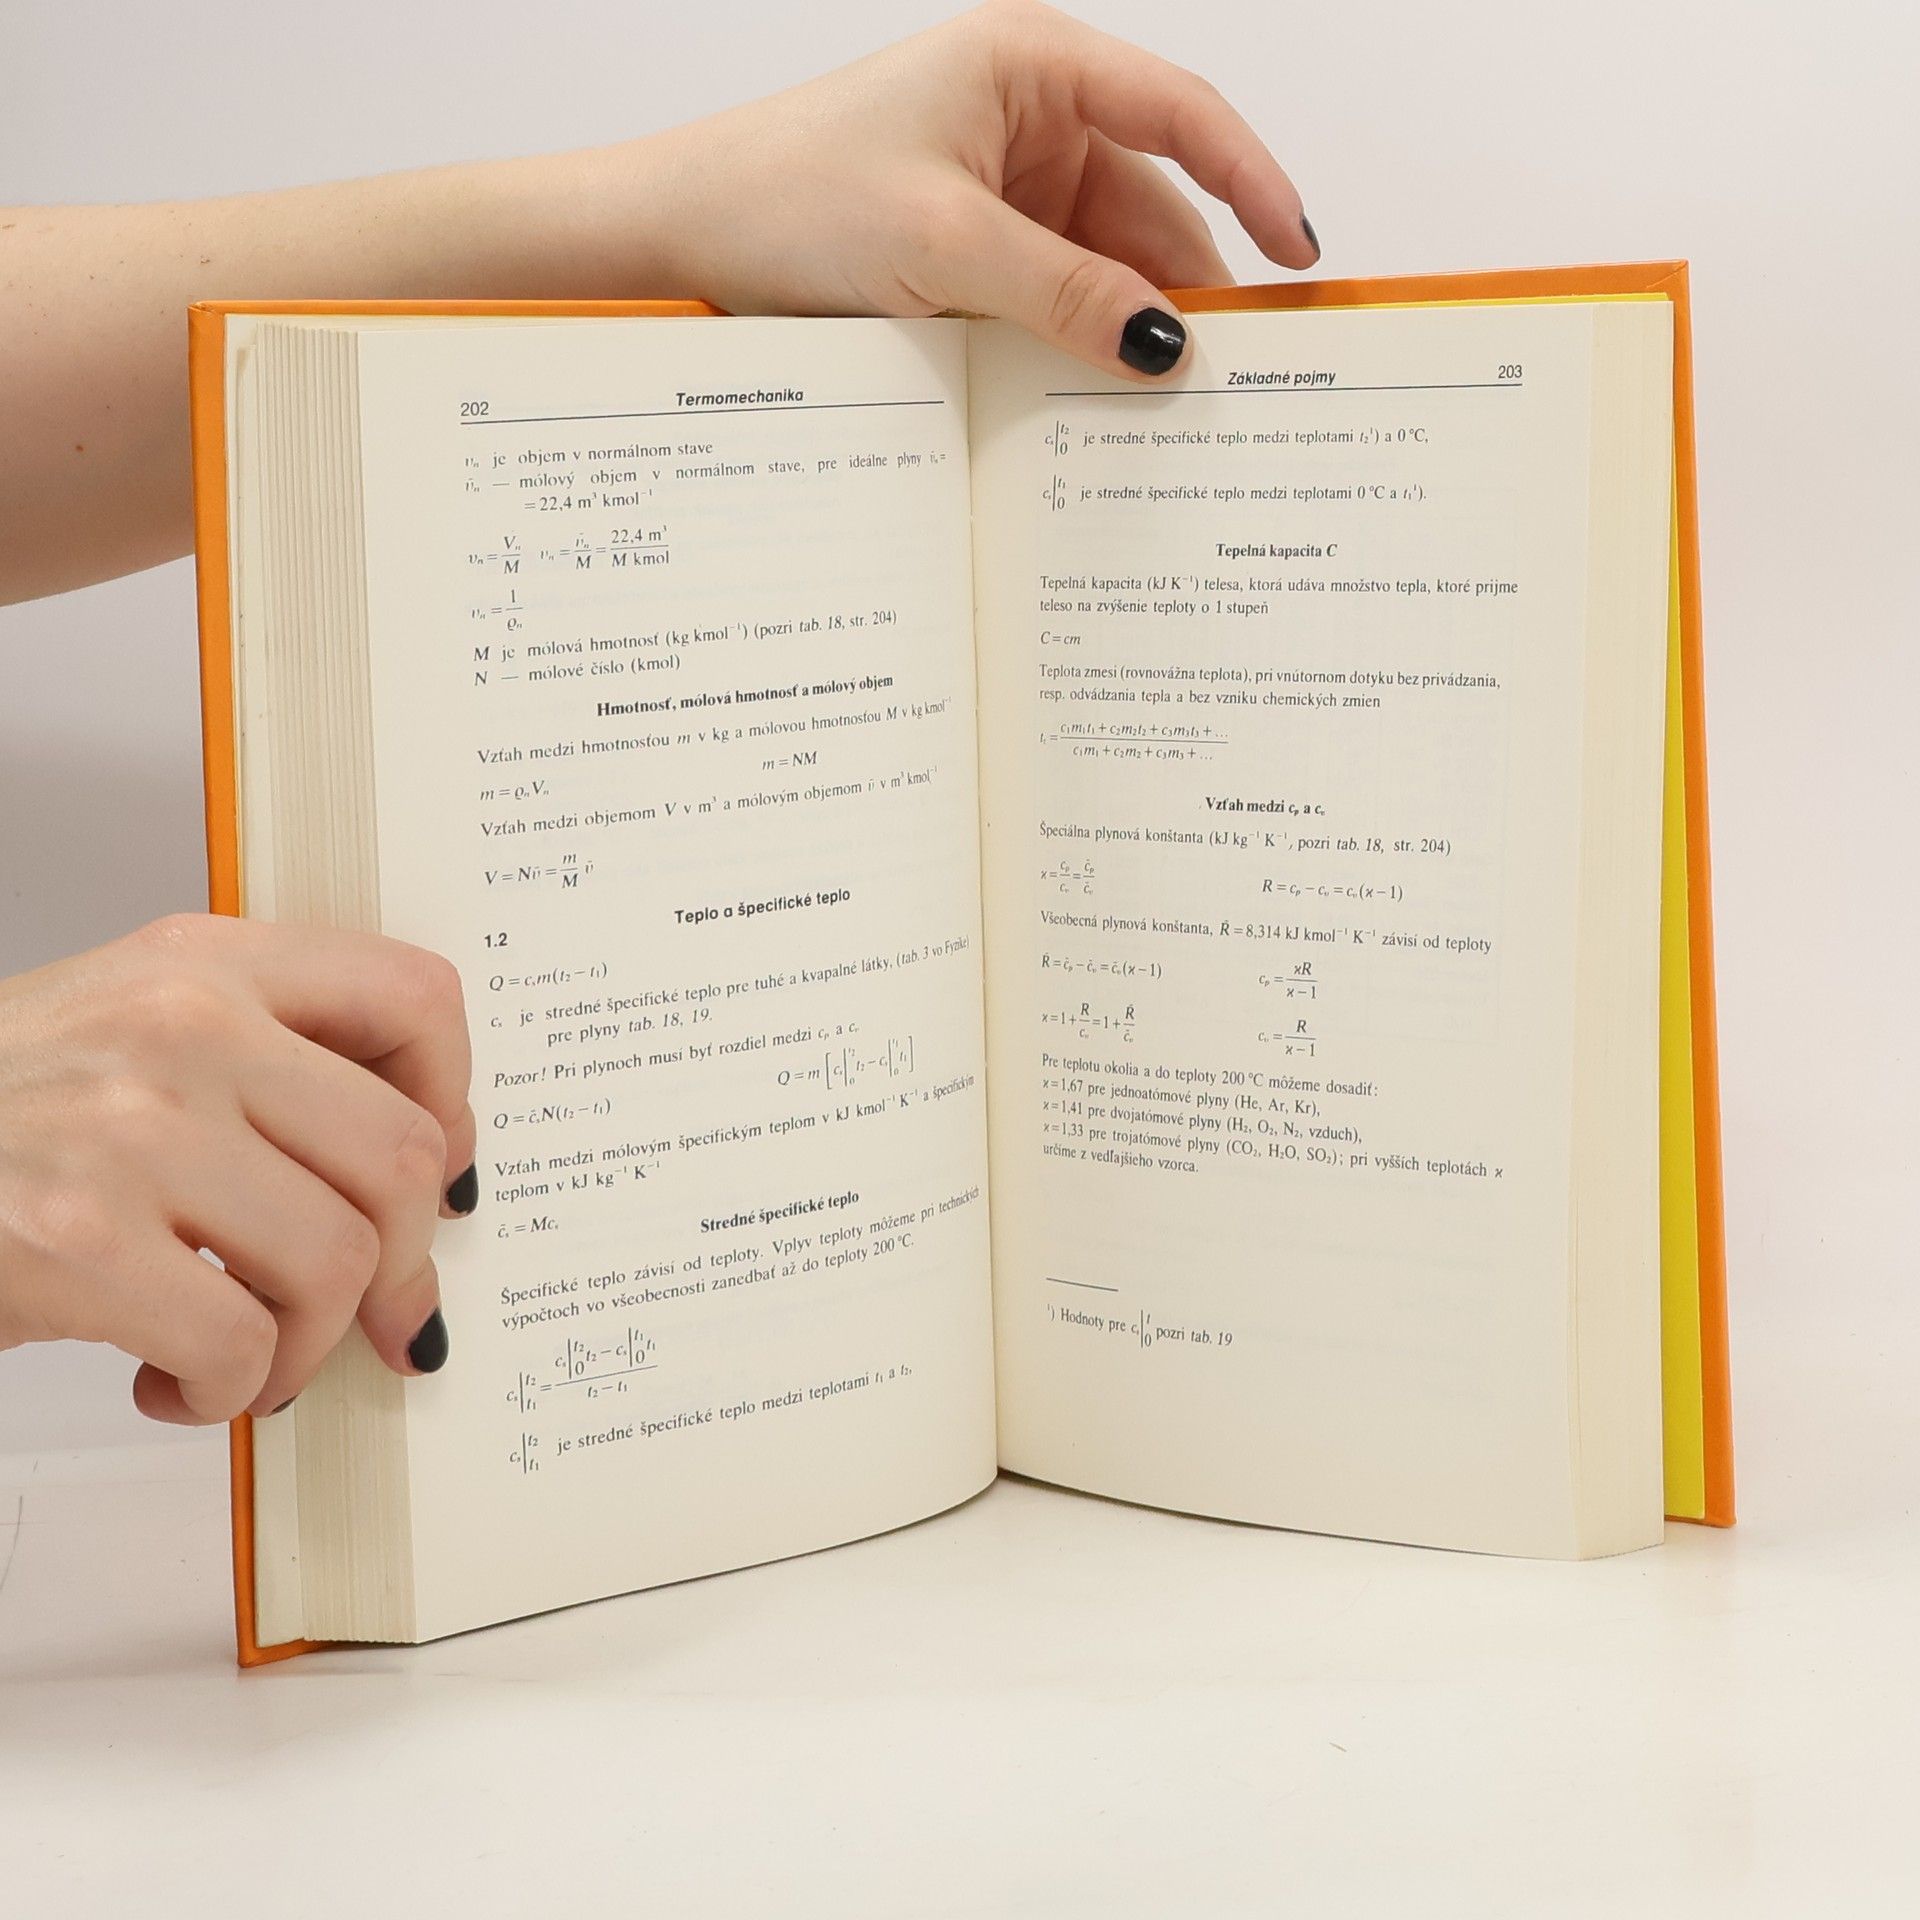 202 Termomechanika
vₙ je objem v normálnom stave
v̄ₙ — mólový objem v normálnom stave, pre ideálne plyny v̄ₙ =
= 22,4 m³ kmol⁻¹
vₙ = Vₙ/M vₙ = v̄ₙ/M = 22,4 m³/M kmol
vₙ = 1/ϱₙ
M je mólová hmotnosť (kg kmol⁻¹) (pozri tab. 18, str. 204)
N — mólové číslo (kmol)
Hmotnosť, mólová hmotnosť a mólový objem
Vzťah medzi hmotnosťou m v kg a mólovou hmotnosťou M v kg kmol⁻¹
m = ϱₙVₙ m = NM
Vzťah medzi objemom V v m³ a mólovým objemom v̄ v m³ kmol⁻¹
V = Nv̄ = m/M v̄
1.2 Teplo a špecifické teplo
Q = cₛm(t₂ − t₁)
cₛ je stredné špecifické teplo pre tuhé a kvapalné látky, (tab. 3 vo Fyzike)
pre plyny tab. 18, 19.
Pozor! Pri plynoch musí byť rozdiel medzi cₚ a cᵥ
Q = c̄ₛN(t₂ − t₁) Q = m [cₛ|₀^t₂ t₂ − cₛ|₀^t₁ t₁]
Vzťah medzi mólovým špecifickým teplom v kJ kmol⁻¹ K⁻¹ a špecifickým
teplom v kJ kg⁻¹ K⁻¹
c̄ₛ = Mcₛ
Stredné špecifické teplo
Špecifické teplo závisí od teploty. Vplyv teploty môžeme pri technických
výpočtoch vo všeobecnosti zanedbať až do teploty 200 °C.
cₛ|t₁^t₂ = (cₛ|₀^t₂ t₂ − cₛ|₀^t₁ t₁)/(t₂ − t₁)
cₛ|t₁^t₂ je stredné špecifické teplo medzi teplotami t₁ a t₂,
Základné pojmy 203
cₛ|₀^t₂ je stredné špecifické teplo medzi teplotami t₂¹) a 0 °C,
cₛ|₀^t₁ je stredné špecifické teplo medzi teplotami 0 °C a t₁¹).
Tepelná kapacita C
Tepelná kapacita (kJ K⁻¹) telesa, ktorá udáva množstvo tepla, ktoré prijme
teleso na zvýšenie teploty o 1 stupeň
C = cm
Teplota zmesi (rovnovážna teplota), pri vnútornom dotyku bez privádzania,
resp. odvádzania tepla a bez vzniku chemických zmien
tₛ = (c₁m₁t₁ + c₂m₂t₂ + c₃m₃t₃ + ...)/(c₁m₁ + c₂m₂ + c₃m₃ + ...)
Vzťah medzi cₚ a cᵥ
Špeciálna plynová konštanta (kJ kg⁻¹ K⁻¹, pozri tab. 18, str. 204)
ϰ = cₚ/cᵥ = c̄ₚ/c̄ᵥ R = cₚ − cᵥ = cᵥ(ϰ − 1)
Všeobecná plynová konštanta, R̄ = 8,314 kJ kmol⁻¹ K⁻¹ závisí od teploty
R̄ = c̄ₚ − c̄ᵥ = c̄ᵥ(ϰ − 1) cₚ = ϰR/(ϰ − 1)
ϰ = 1 + R/cᵥ = 1 + R̄/c̄ᵥ cᵥ = R/(ϰ − 1)
Pre teplotu okolia a do teploty 200 °C môžeme dosadiť:
ϰ = 1,67 pre jednoatómové plyny (He, Ar, Kr),
ϰ = 1,41 pre dvojatómové plyny (H₂, O₂, N₂, vzduch),
ϰ = 1,33 pre trojatómové plyny (CO₂, H₂O, SO₂); pri vyšších teplotách ϰ
určíme z vedľajšieho vzorca.
¹) Hodnoty pre cₛ|₀^t pozri tab. 19